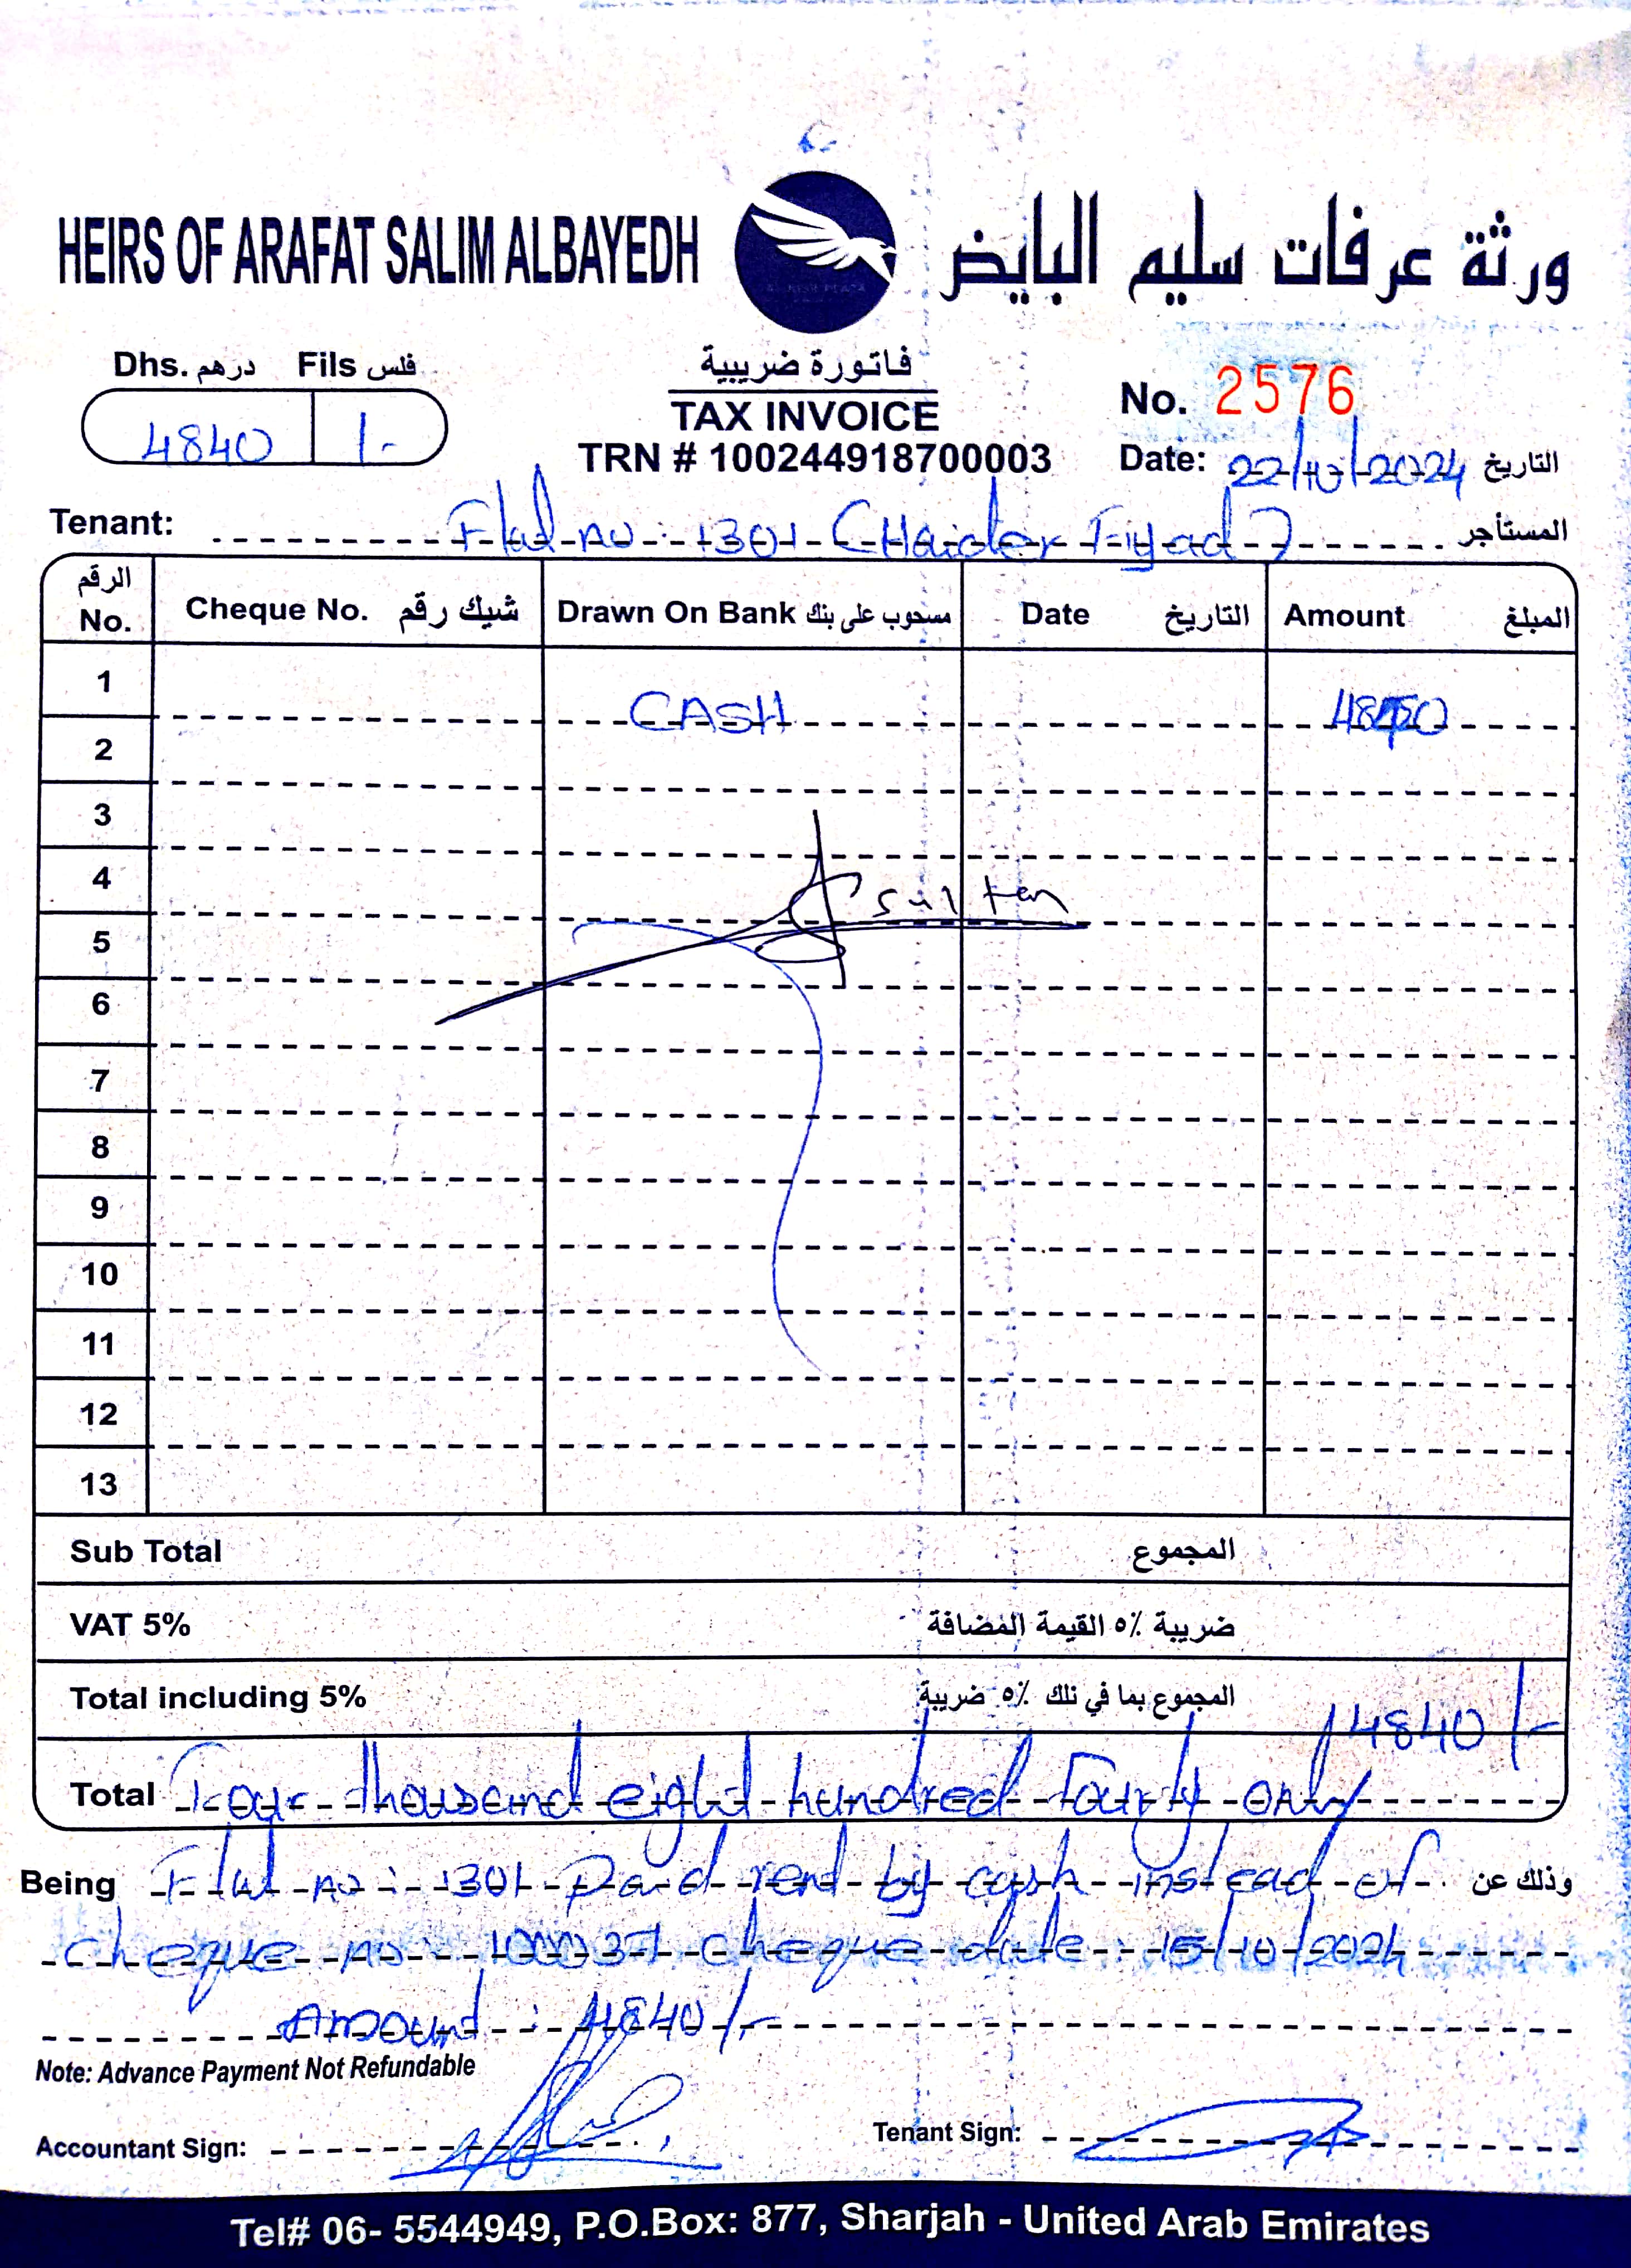 HEIRS OF ARAFAT SALIM ALBAYEDH
ورثة عرفات سليم البايض
Dhs. درهم Fils فلس
4840 /-
فاتورة ضريبية
TAX INVOICE
TRN # 100244918700003
No. 2576
Date: 22/10/2024 التاريخ
Tenant: Flat no : 1301 (Haider Fiyad) المستأجر
الرقم No. Cheque No. شيك رقم Drawn On Bank مسحوب على بنك Date التاريخ Amount المبلغ
1 CASH 4840
2
3
4 Sultan
5
6
7
8
9
10
11
12
13
Sub Total المجموع
VAT 5% ضريبة ٥٪ القيمة المضافة
Total including 5% المجموع بما في ذلك ٥٪ ضريبة 4840/-
Total Four thousand eight hundred fourty only
Being Flat no : 1301 Paid rent by cash instead of وذلك عن
cheque no : 100037 cheque date : 15/10/2024
Amount : 4840/-
Note: Advance Payment Not Refundable
Accountant Sign: Tenant Sign:
Tel# 06- 5544949, P.O.Box: 877, Sharjah - United Arab Emirates